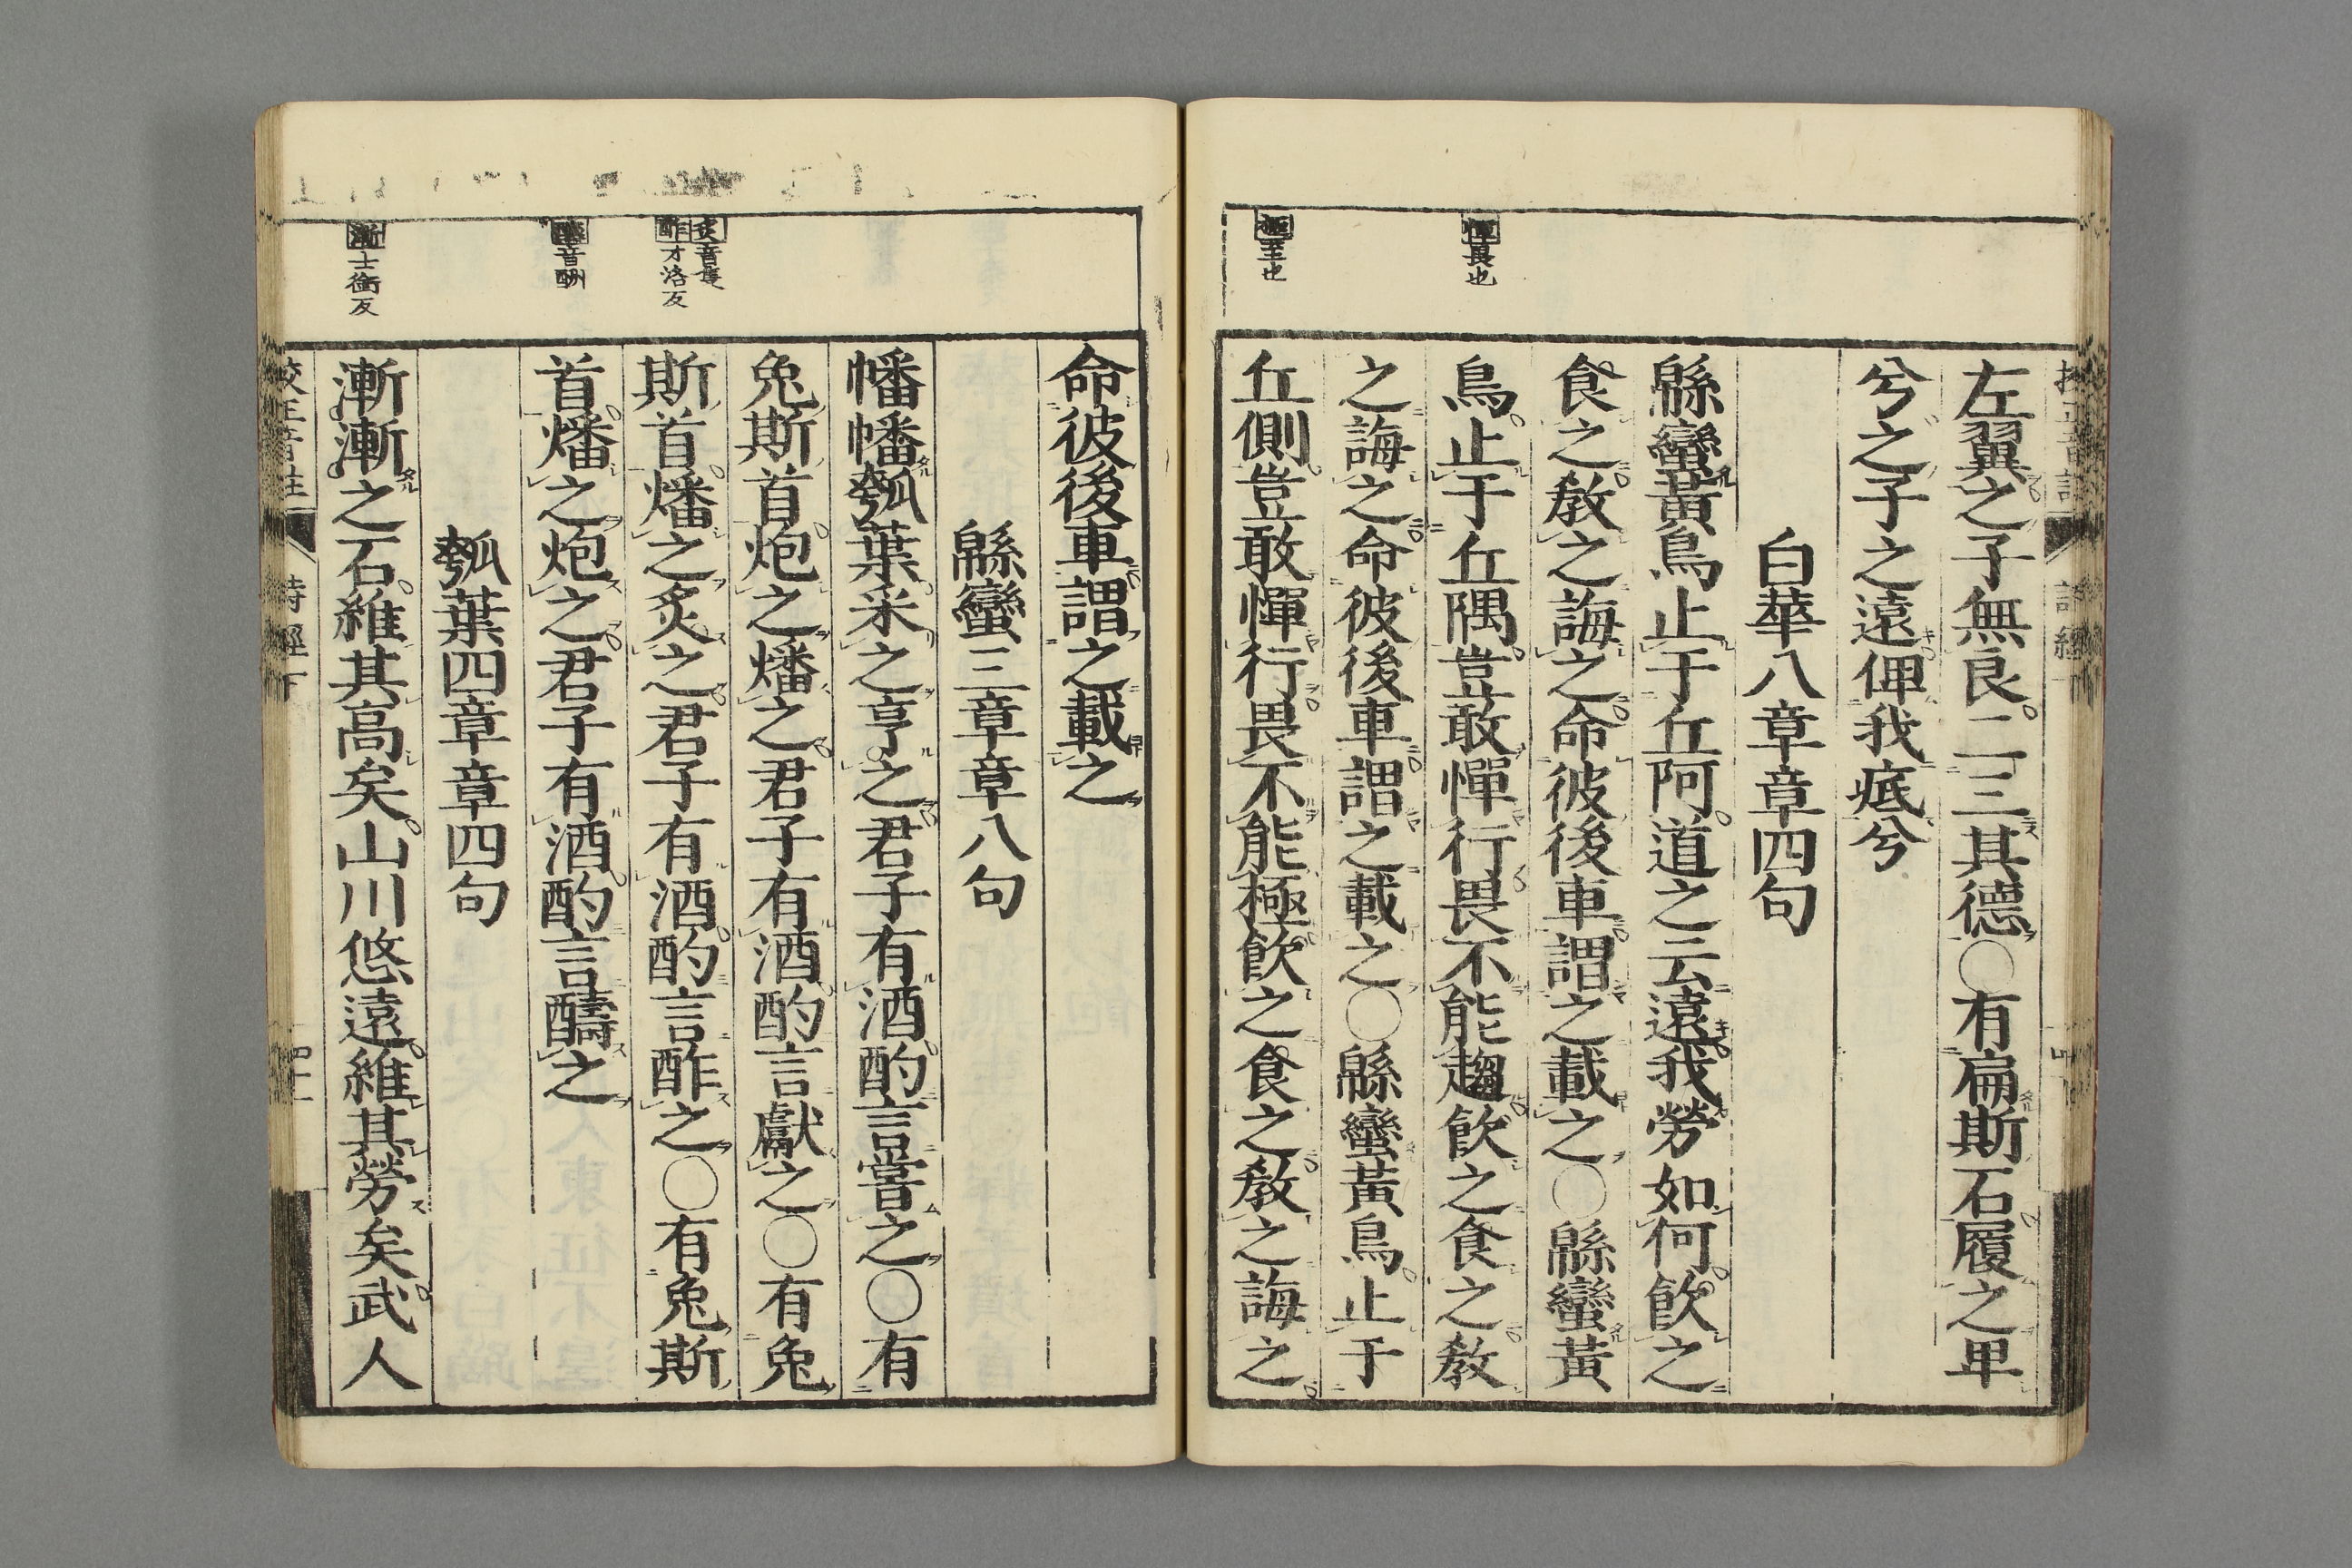 憚畏也
極至也
左翼之子無良二三其德○有扁斯石履之卑
兮之子之遠俾我疷兮
白華八章章四句
緜蠻黃鳥止于丘阿道之云遠我勞如何飮之
食之敎之誨之命彼後車謂之載之○緜蠻黃
鳥止于丘隅豈敢憚行畏不能趨飮之食之敎
之誨之命彼後車謂之載之○緜蠻黃鳥止于
丘側豈敢憚行畏不能極飮之食之敎之誨之
炙音隻
酢才洛反
醻音酬
漸士銜反
命彼後車謂之載之
緜蠻三章章八句
幡幡瓠葉采之亨之君子有酒酌言嘗之○有
兔斯首炮之燔之君子有酒酌言獻之○有兔
斯首燔之炙之君子有酒酌言酢之○有兔斯
首燔之炮之君子有酒酌言醻之
瓠葉四章章四句
漸漸之石維其高矣山川悠遠維其勞矣武人
校正音註 詩經下